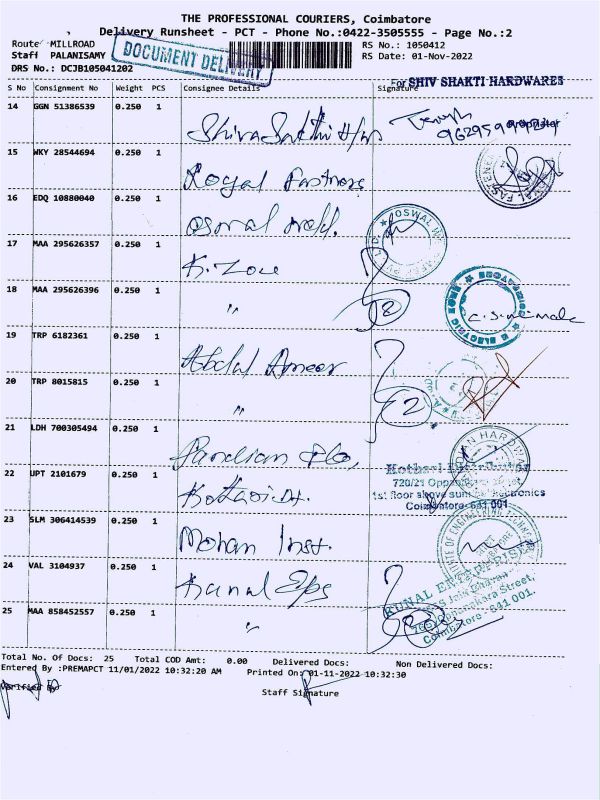 THE PROFESSIONAL COURIERS, Coimbatore
Delivery Runsheet - PCT - Phone No.:0422-3505555 - Page No.:2
Route MILLROAD
RS No.: 1050412
Staff PALANISAMY
RS Date: 01-Nov-2022
DRS No.: DCJB105041202
DOCUMENT DELIVERY
For SHIV SHAKTI HARDWARES
S No Consignment No Weight PCS Consignee Details Signature
14 GGN 51386539 0.250 1
Shiva Sakthi H/w
Proprietor
15 WKY 28544694 0.250 1
Royal Fastners
16 EDQ 10880040 0.250 1
Oswal
OSWAL
17 MAA 295626357 0.250 1
K. Zone
18 MAA 295626396 0.250 1
"
2
ELECTRIC
19 TRP 6182361 0.250 1
Abdul Ameer
20 TRP 8015815 0.250 1
"
2
21 LDH 700305494 0.250 1
Pandian & Co,
HARDWAR
22 UPT 2101679 0.250 1
Kothari
720/21
1st floor above
Coimbatore-641 001.
23 SLM 306414539 0.250 1
Mohan Inst.
OF ENGINEERING
24 VAL 3104937 0.250 1
Kunal Eps
KUNAL ENTERPRISES
25 MAA 858452557 0.250 1
"
Street,
Coimbatore - 641 001.
Total No. Of Docs: 25 Total COD Amt: 0.00 Delivered Docs: Non Delivered Docs:
Entered By :PREMAPCT 11/01/2022 10:32:20 AM Printed On: 01-11-2022 10:32:30
Verified By
Staff Signature